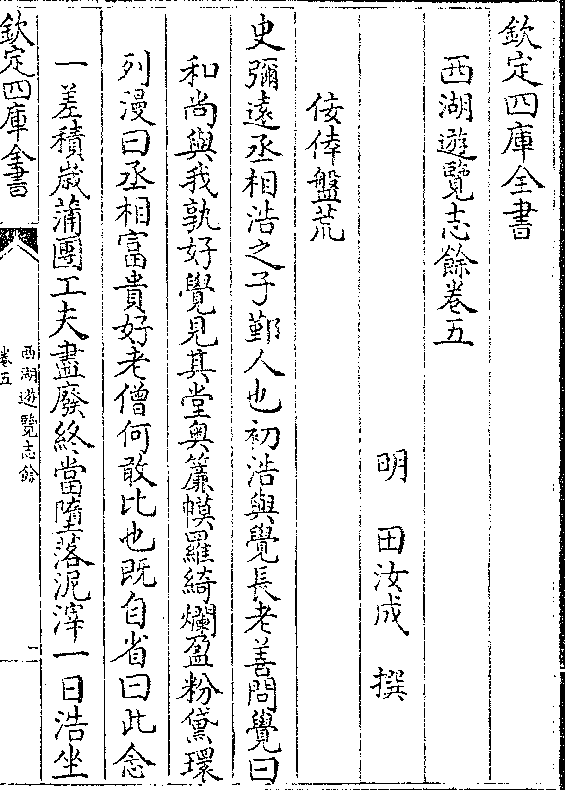 欽定四庫全書
西湖遊覽志餘卷五
明 田汝成 撰
佞倖盤荒
史彌遠丞相浩之子鄞人也初浩與覺長老善問覺曰
和尚與我孰好覺見其堂奧簾幙羅綺爛盈粉黛環
列漫曰丞相富貴好老僧何敢比也既自省曰此念
一差積歲蒲團工夫盡廢終當墮落泥滓一日浩坐
欽定四庫全書
西湖遊覽志餘
卷五
一